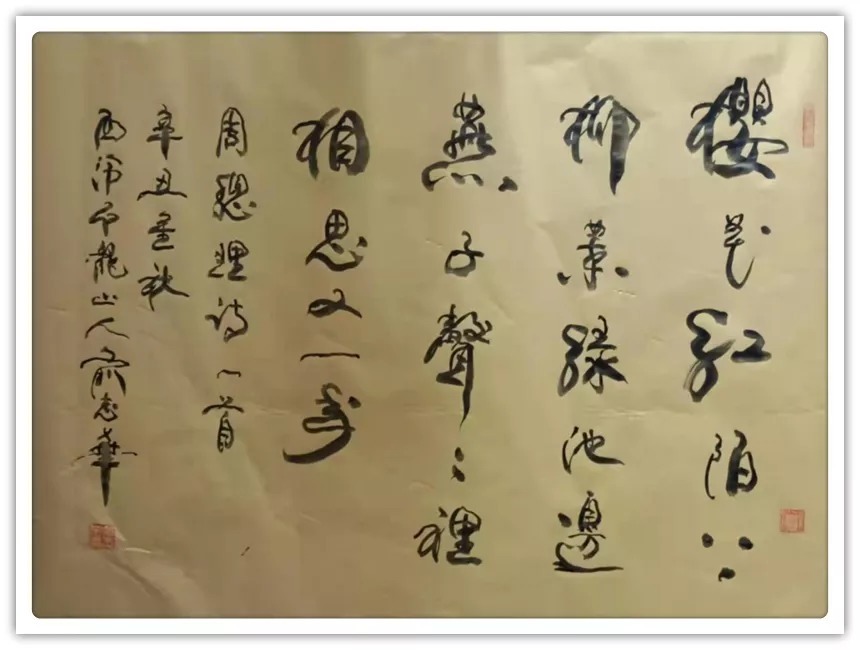 櫻花紅陌上
柳葉綠池邊
燕子聲々裡
相思又一年
周總理詩一首
辛丑秋
龍山人俞志華